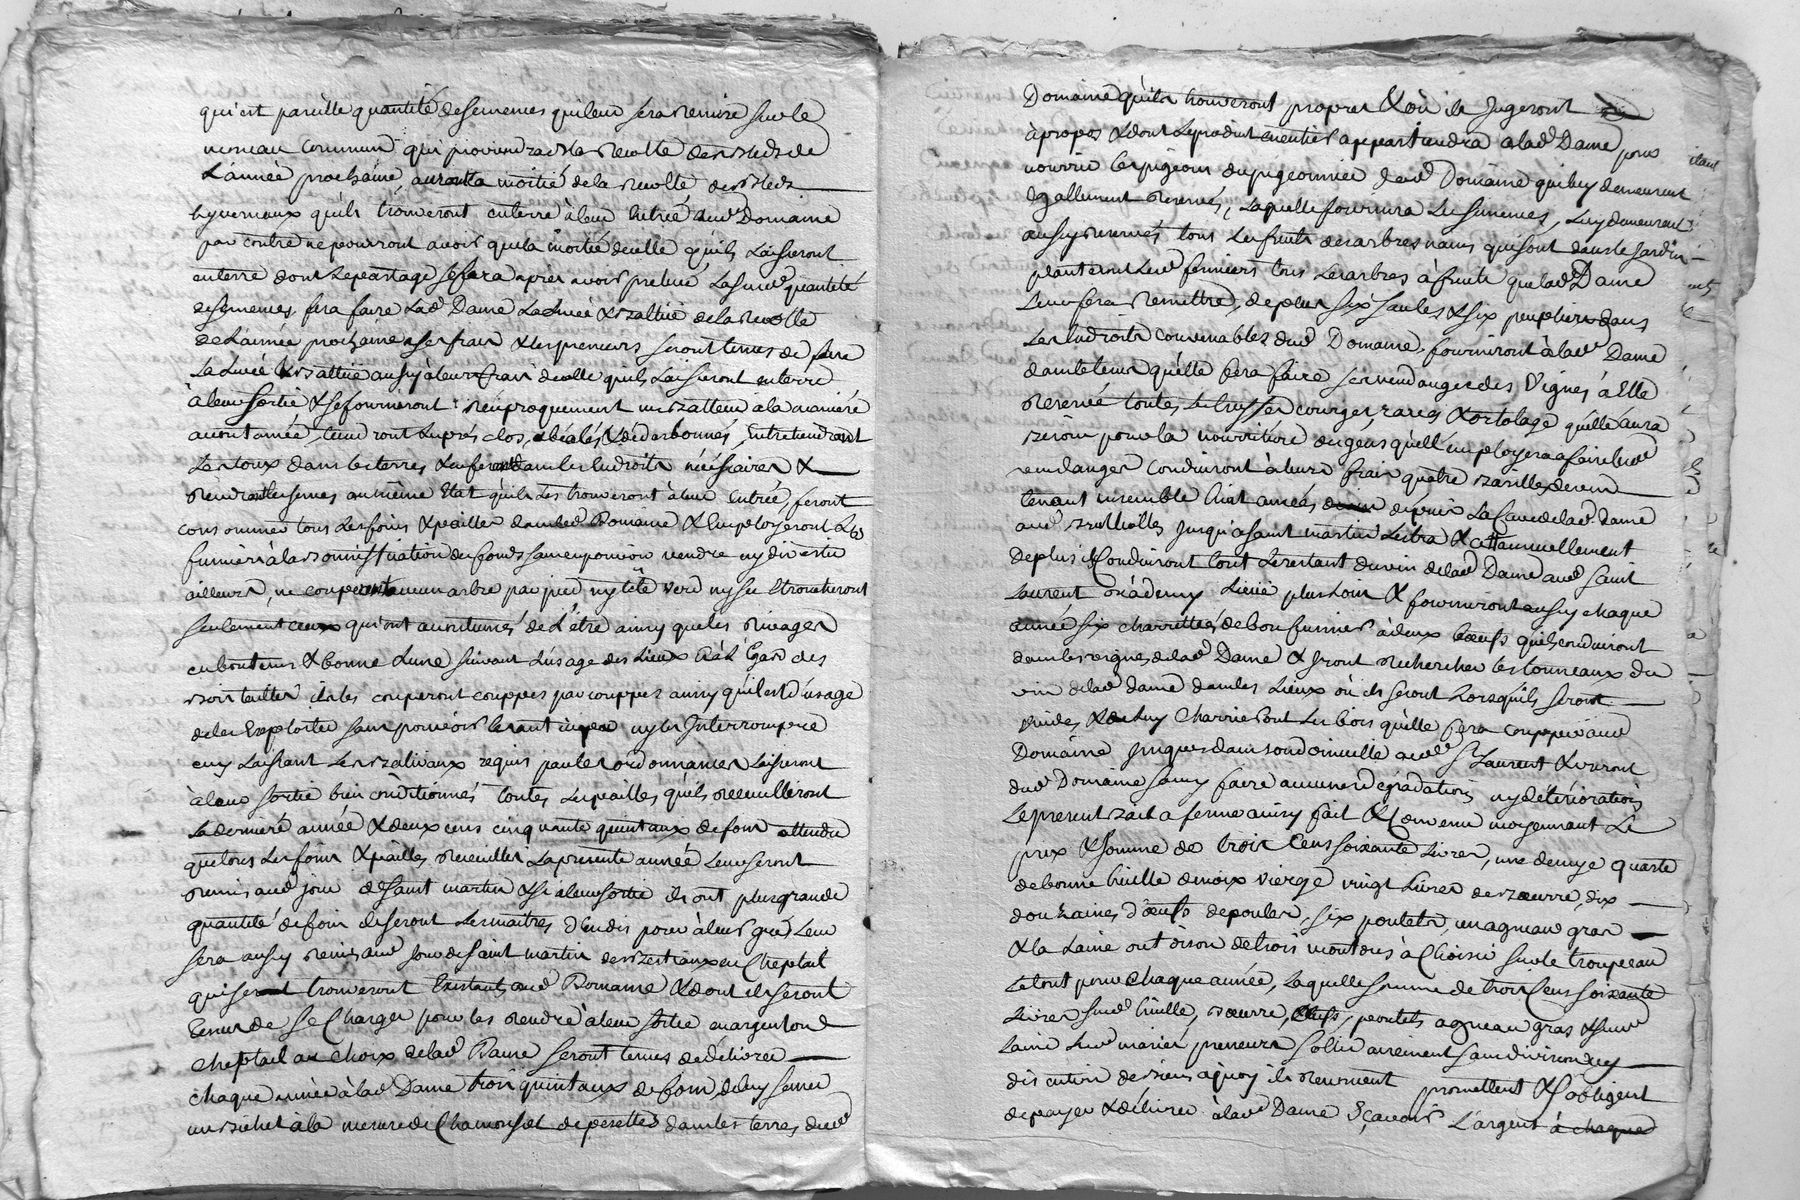 qu'est pareille quantité de semences qui leur sera remise sur le
monceau commun qui proviendra de la recolte des bleds de
L'année prochaine, auront la moitié de la recolte des bleds
hyvernaux qu'ils trouveront enterre à leur entrée aud Domaine
par contre ne pourront avoir que la moitié de celle qu'ils Laisseront
enterre dont Le partage se fera apres avoir prelevé La susd quantité
de semences, fera faire Lad Dame La Levée & battue de la recolte
de L'année prochaine a ses frais & les preneurs seront tenus de faire
La Levée & battue aussy à leurs frais de celle qu'ils Laisseront enterre
à leur sortie & se fourniront reciproquement un batteur à la maniere
accoutumée, tiendront Les prés clos, & béalés & dédarbonnés, entretiendront
Les toux dans les terres & en feront dans les Endroits nécéssaires &
rendront les memes au même Etat qu'ils Les trouveront à leur entrée, feront
consommer tous Les foins & pailles dans led Domaine & Employeront Les
fumiers à la bonniffication des fonds sans en pouvoir vendre ny divertir
ailleurs, ne couperont aucun arbre par pied ny tête verd ny sec Etroncheront
seulement ceux qui ont accoutumés de L'être ainsy que les rivages
en bon tems & bonne Lune suivant L'usage des Lieux & à L'Egard des
bois taillis ils les couperont couppes par couppes ainsy qu'il est d'usage
de les Exploiter sans pouvoir ny les Interrompre
en y Laissant Les balivaux requis par les ordonnances Laisseront
à leur sortie bien conditionnés toutes Les pailles qu'ils recueilleront
La derniere année & deux cens cinquante quintaux de foin attendu
que tous Les foins & pailles recueillies La presente année Leur seront
remis aud jour de saint martin & si à leur sortie ils ont plus grande
quantité de foin ils seront Les maitres d'en disposer à leur gré, Leur
sera aussy remis aud jour de saint martin des bestiaux en Cheptail
qui se trouveront Existants aud Domaine & dont ils seront
tenus de se Charger pour les rendre à leur sortie en argent ou
cheptail au choix de lad Dame seront tenus de délivrer
chaque année à lad Dame trois quintaux de foin de luy semer
un bichet à la mesure de Chamousset de pesettes dans les terres dud
Domaine qu'ils trouveront propres & où ils Jugeront
àpropos & dont Le produit entier appartiendra à lad Dame pour
nourrir les pigeons du pigeonnier dud Domaine qui luy demeurent
Egallement reservés, Laquelle fournira Les semences, Luy demeurant
aussy reservés tous Les fruits des arbres nains qui sont dans le Jardin
planteront Lesd fermiers tous Les arbres à fruits que lad Dame
Leur fera remettre, de plus six saules & six peupliers dans
Les Endroits convenables dud Domaine, fourniront à lad Dame
dans le tems qu'elle fera faire ses vendanges des Vignes à Elle
reservée toutes Les truffes courges, raves & ortolage qu'elle aura
besoin pour la nourriture des gens qu'elle employera a faire lesd
vendanges conduiront à leurs frais quatre barilles de vin
tenant ensemble huit anées depuis La Cave de lad Dame
aud jusqu'a saint martin Lestra & ce annuellement
De plus Conduiront tout Le restant du vin de lad Dame aud saint
Laurent ou à demy Lieüe plus Loin & fourniront aussy chaque
année six charrettées de bon fumier à deux bœufs qu'ils conduiront
dans les vignes de lad Dame & Iront rechercher les tonneaux du
vin de lad dame dans les Lieux où ils seront Lorsqu'ils seront
vuides, & de luy Charrieront Les bois qu'elle fera coupper aud
Domaine jusques dans son domicille aud St Laurent & uzeront
dud Domaine sans y faire aucunes dégradations ny détériorations
Le present bail a ferme ainsy fait & Convenu moyennant Le
prix & somme de trois Cens soixante Livres, une demye quarte
de bonne huille de noix vierge vingt Livres de beurre, dix
douzaines d'œufs de poules, six poulets, un agneau gras
& la Laine ou toison de trois moutons à Choisir sur le troupeau
Le tout pour chaque année, Laquelle somme de trois Cens soixante
Livres susd huille, beurre, œufs, poulets agneau gras & susd
Laine Lesd mariés preneurs sollidairement sans division ny
discution de biens a quoy ils renoncent promettent & s'obligent
de payer & délivrer à lad Dame Sçavoir L'argent à chaque